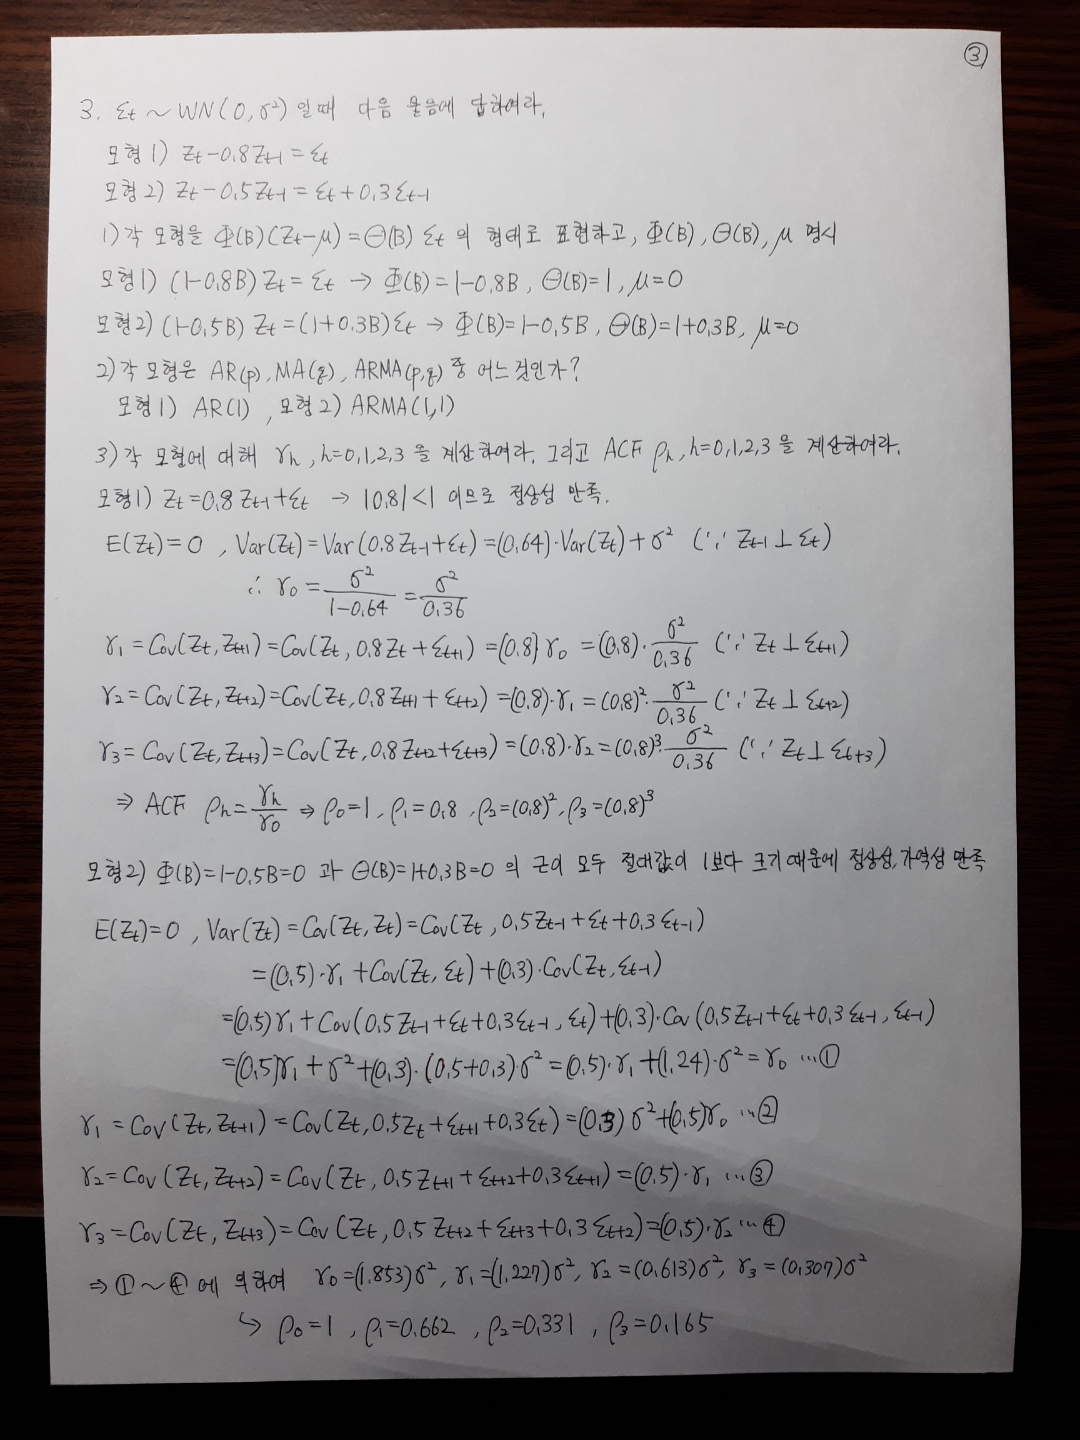 ③
3. εt ~ WN(0, σ²) 일 때 다음 물음에 답하여라.
모형 1) Zt - 0.8Zt-1 = εt
모형 2) Zt - 0.5Zt-1 = εt + 0.3εt-1
1) 각 모형을 Φ(B)(Zt-μ) = Θ(B) εt 의 형태로 표현하고, Φ(B), Θ(B), μ 명시
모형 1) (1-0.8B) Zt = εt → Φ(B) = 1-0.8B, Θ(B)=1, μ=0
모형 2) (1-0.5B) Zt = (1+0.3B)εt → Φ(B)=1-0.5B, Θ(B)=1+0.3B, μ=0
2) 각 모형은 AR(p), MA(q), ARMA(p,q) 중 어느 것인가?
모형 1) AR(1), 모형 2) ARMA(1,1)
3) 각 모형에 대해 γh, h=0,1,2,3 을 계산하여라. 그리고 ACF ρh, h=0,1,2,3 을 계산하여라.
모형 1) Zt = 0.8 Zt-1 + εt → |0.8| < 1 이므로 정상성 만족.
E(Zt) = 0, Var(Zt) = Var(0.8Zt-1+εt) = (0.64)·Var(Zt) + σ² (∵ Zt-1 ⊥ εt)
∴ γ0 = σ²/(1-0.64) = σ²/0.36
γ1 = Cov(Zt, Zt+1) = Cov(Zt, 0.8Zt + εt+1) = (0.8) γ0 = (0.8)· σ²/0.36 (∵ Zt ⊥ εt+1)
γ2 = Cov(Zt, Zt+2) = Cov(Zt, 0.8Zt+1 + εt+2) = (0.8)·γ1 = (0.8)²· σ²/0.36 (∵ Zt ⊥ εt+2)
γ3 = Cov(Zt, Zt+3) = Cov(Zt, 0.8Zt+2+εt+3) = (0.8)·γ2 = (0.8)³· σ²/0.36 (∵ Zt ⊥ εt+3)
⇒ ACF ρh = γh/γ0 → ρ0=1, ρ1=0.8, ρ2=(0.8)², ρ3=(0.8)³
모형 2) Φ(B)=1-0.5B=0 과 Θ(B)=1+0.3B=0 의 근이 모두 절대값이 1보다 크기 때문에 정상성, 가역성 만족
E(Zt)=0, Var(Zt) = Cov(Zt, Zt) = Cov(Zt, 0.5Zt-1 + εt + 0.3εt-1)
= (0.5)·γ1 + Cov(Zt, εt) + (0.3)·Cov(Zt, εt-1)
= (0.5)γ1 + Cov(0.5Zt-1 + εt + 0.3εt-1, εt) + (0.3)·Cov(0.5Zt-1 + εt + 0.3εt-1, εt-1)
= (0.5)γ1 + σ² + (0.3)·(0.5+0.3)σ² = (0.5)·γ1 + (1.24)·σ² = γ0 … ①
γ1 = Cov(Zt, Zt+1) = Cov(Zt, 0.5Zt + εt+1 + 0.3εt) = (0.3)σ² + (0.5)γ0 … ②
γ2 = Cov(Zt, Zt+2) = Cov(Zt, 0.5Zt+1 + εt+2 + 0.3εt+1) = (0.5)·γ1 … ③
γ3 = Cov(Zt, Zt+3) = Cov(Zt, 0.5Zt+2 + εt+3 + 0.3εt+2) = (0.5)·γ2 … ④
⇒ ①~④ 에 의하여 γ0 = (1.853)σ², γ1 = (1.227)σ², γ2 = (0.613)σ², γ3 = (0.307)σ²
↳ ρ0=1, ρ1=0.662, ρ2=0.331, ρ3=0.165